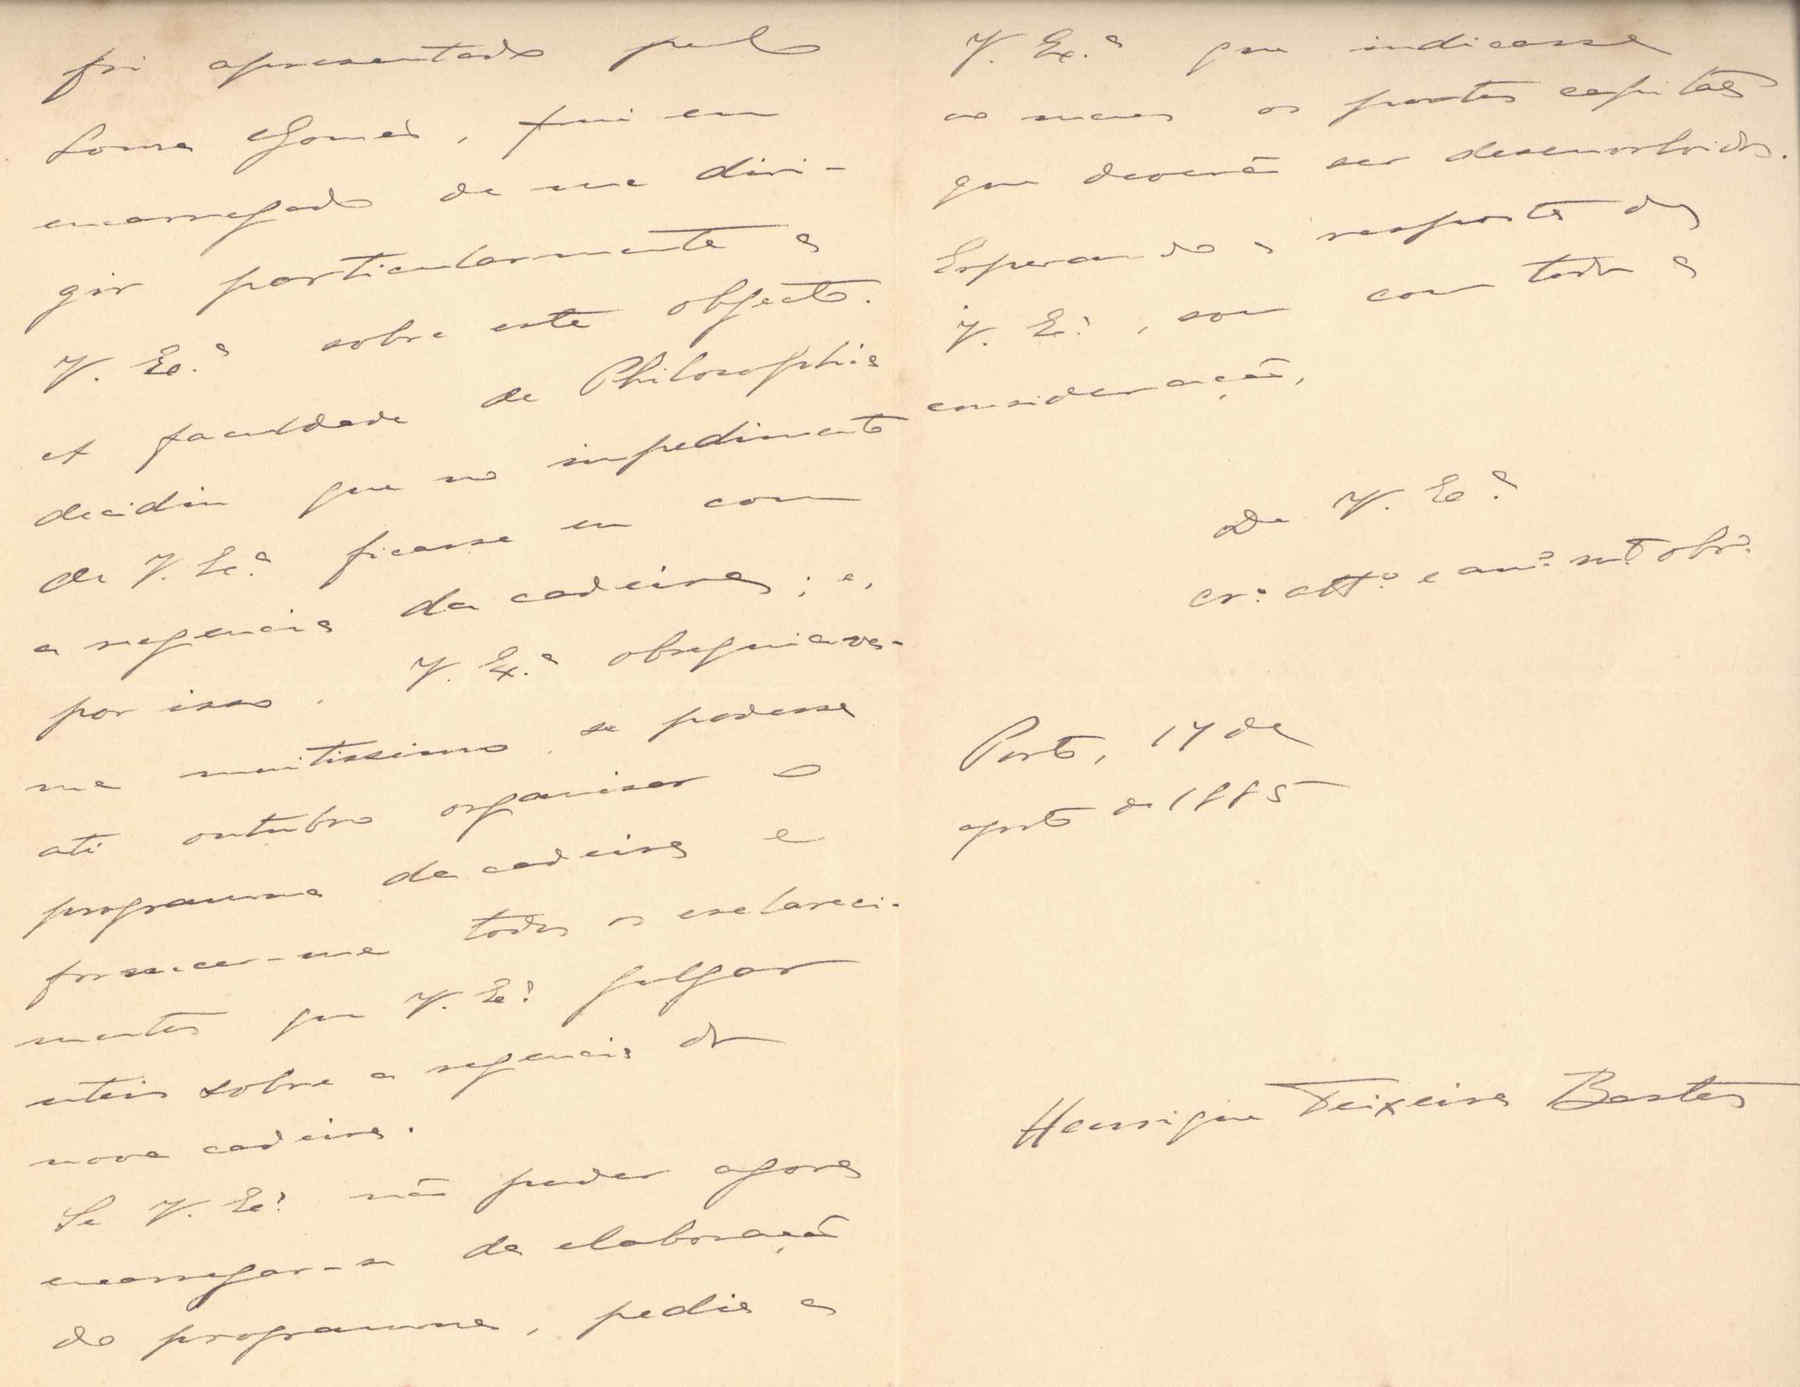 foi apresentado pelo
Sousa Gomes, fui eu
encarregado de me diri-
gir particularmente a
V. Ex.ª sobre este objecto.
A faculdade de Philosophia
decidiu que no impedimento
de V. Ex.ª ficasse eu com
a regencia da cadeira; e,
por isso, V. Ex.ª obsequiava-
me muitissimo, se podesse
até outubro organisar o
programma da cadeira e
fornecer-me todos os esclareci-
mentos que V. Ex.ª julgar
uteis sobre a regencia da
nova cadeira.
Se V. Ex.ª não poder agora
encarregar-se da elaboração
do programma, pedia a
V. Ex.ª que indicasse
ao menos os pontos capitães
que deverão ser desenvolvidos.
Esperando a resposta de
V. Ex.ª, sou com toda a
consideração,
De V. Ex.ª
cr.º att.º e am.º m.to obr.º
Porto, 17 de
agosto de 1885
Henrique Teixeira Bastos